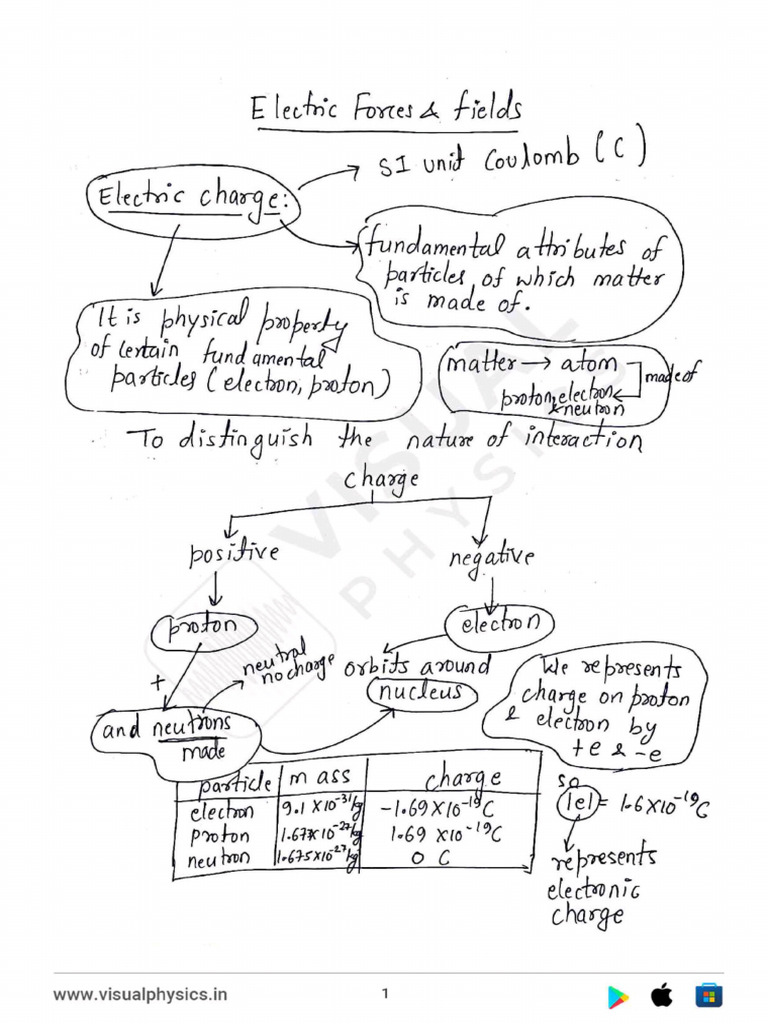 Electric Forces & fields
SI unit Coulomb (C)
Electric charge:
fundamental attributes of
particles of which matter
is made of.
It is physical property
of certain fundamental
particles (electron, proton)
matter → atom
made of
proton, electron
& neutron
To distinguish the nature of interaction
charge
positive
negative
proton
electron
+
neutral
no charge
orbits around
nucleus
We represents
charge on proton
& electron by
+e & -e
and neutrons
made
particle mass charge
electron 9.1 X10-31kg -1.69X10-19C
proton 1.67X10-27kg 1.69 X10-19C
neutron 1.675X10-27kg 0 C
so
|e| = 1.6X10-19C
represents
electronic
charge
VISUAL
PHYSICS
www.visualphysics.in
1